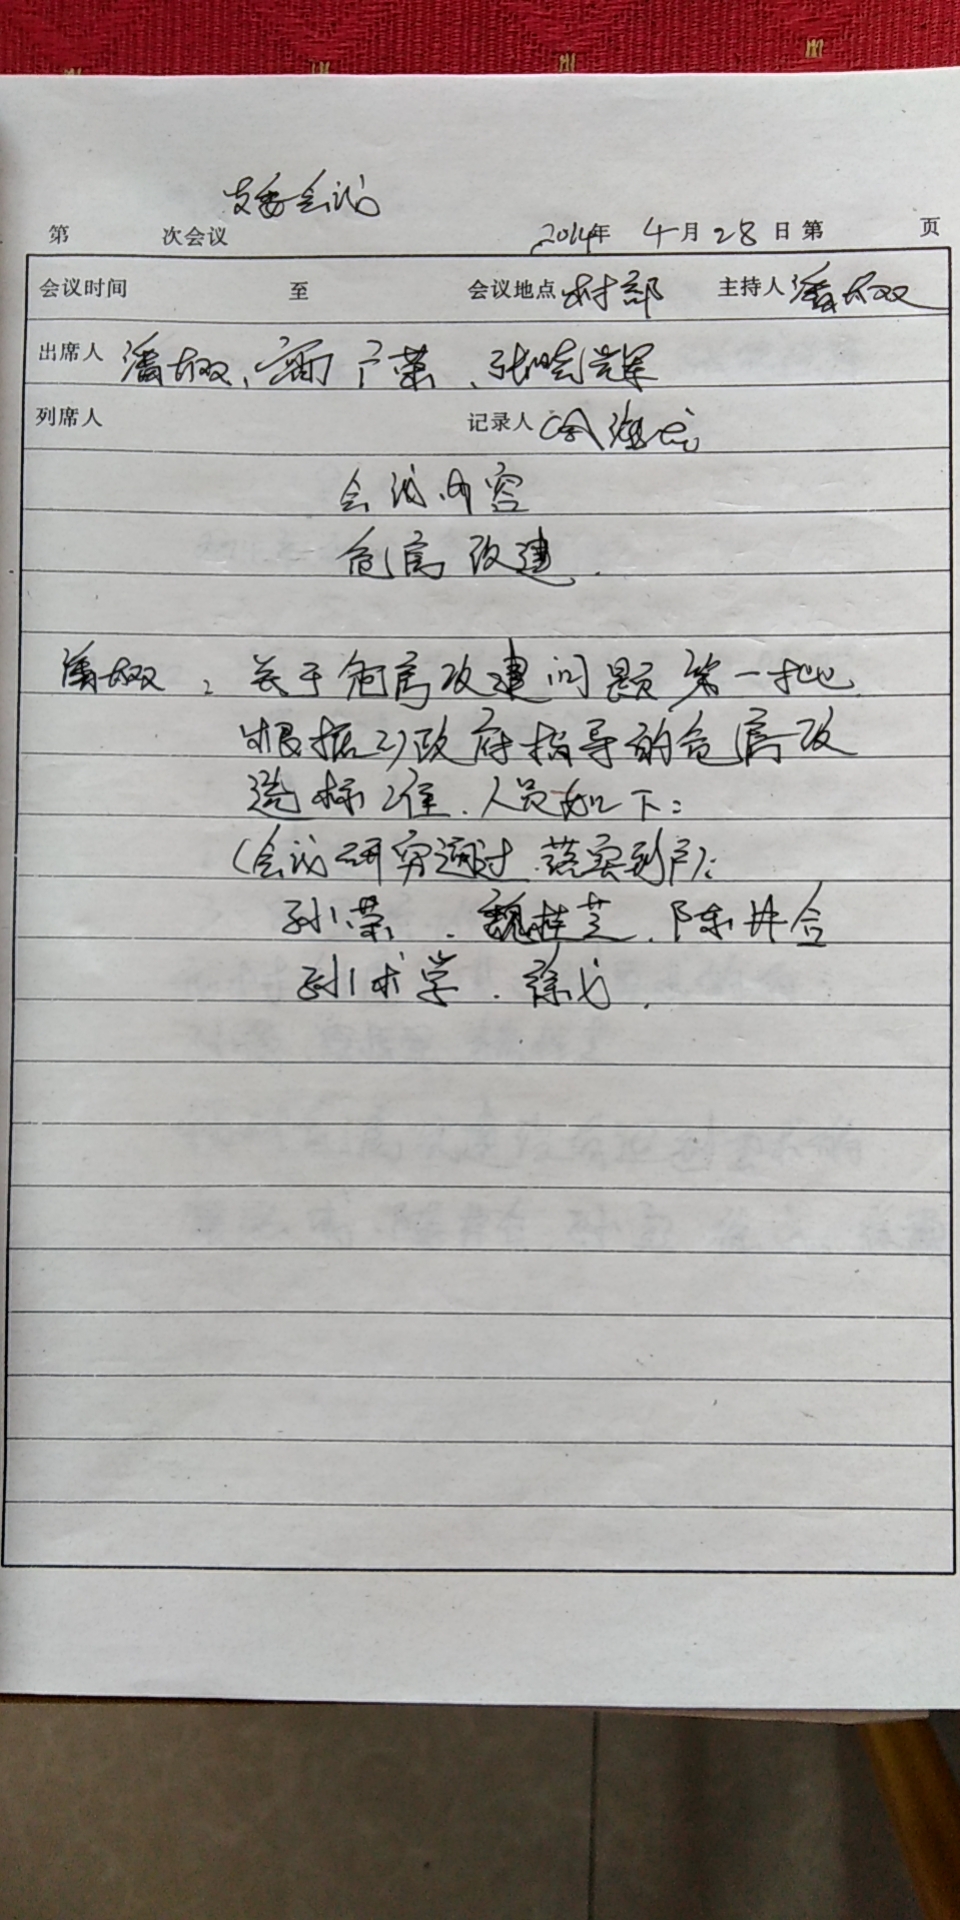 支委会议
第 次会议 2014年 4月28日 第 页
会议时间 至 会议地点 村部 主持人 潘
出席人 潘 、 广荣、张晓辉
列席人 记录人
会议内容
危房改建.
潘 : 关于危房改建问题第一批
根据乡政府指导的危房改
造标准.人员如下:
(会议研究通过.落实到户):
孙荣.魏桂芝.陈井合
孙术学.徐